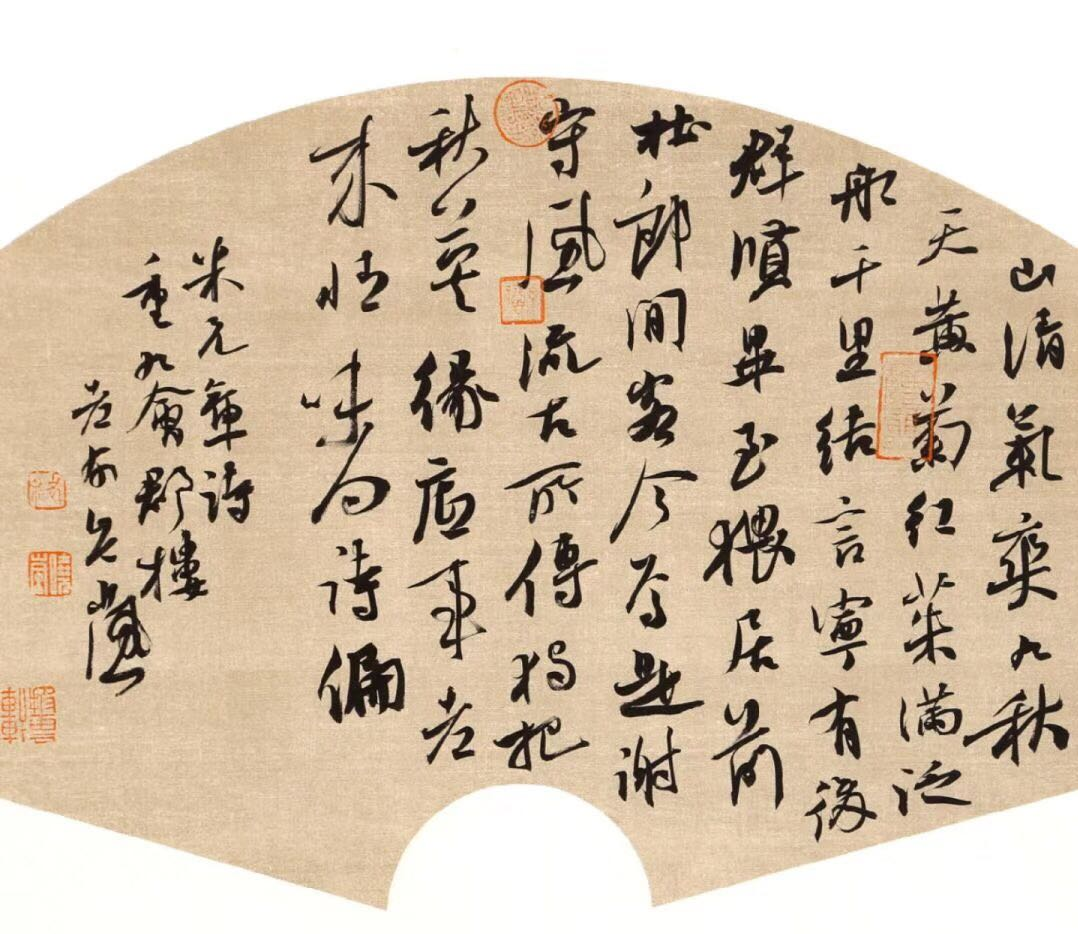 山清氣爽九秋
天黄菊紅茱滿泛
船千里結言寧有後
群賢畢至猥居前
杜郎閒客今焉是謝
守風流古所傳獨把
秋英緣底事老
來情味向詩偏
米元章詩
重九會郡樓